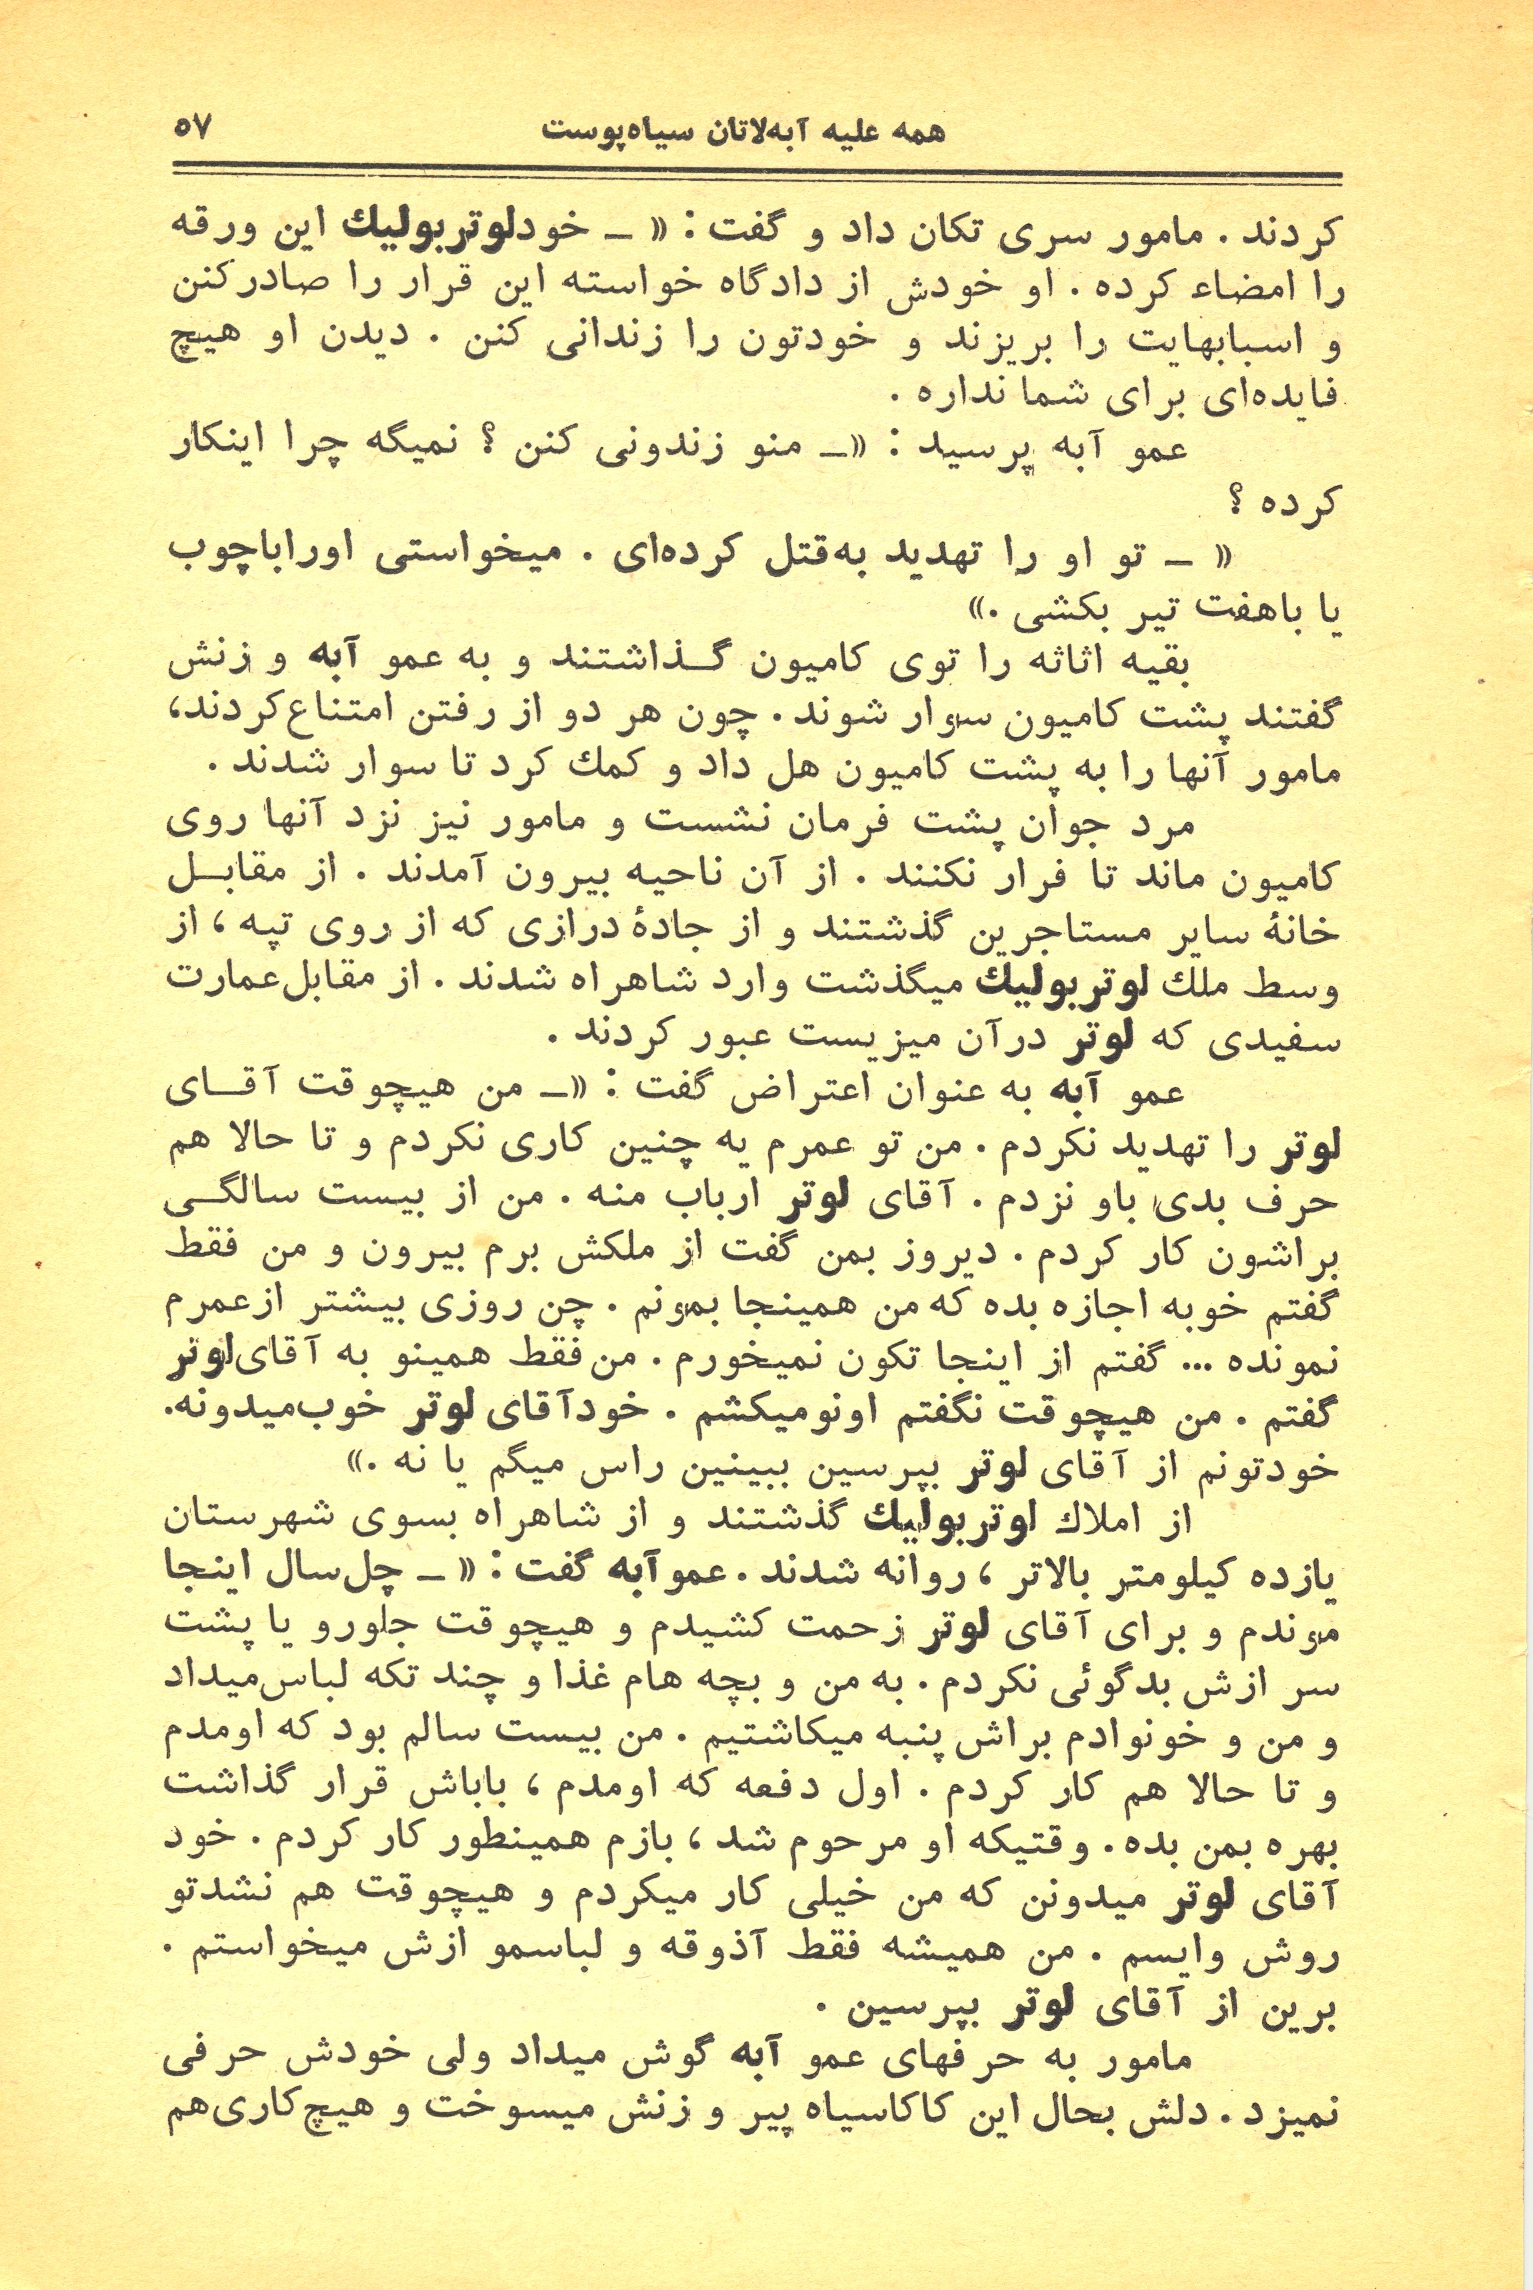 همه علیه آبه‌لاتان سیاه‌پوست ۵۷
کردند . مامور سری تکان داد و گفت : « ــ خودلوتربولیك این ورقه
را امضاء کرده . او خودش از دادگاه خواسته این قرار را صادرکنن
و اسبابهایت را بریزند و خودتون را زندانی کنن . دیدن او هیچ
فایده‌ای برای شما نداره .
عمو آبه پرسید : «ــ منو زندونی کنن ؟ نمیگه چرا اینکار
کرده ؟
« ــ تو او را تهدید به‌قتل کرده‌ای . میخواستی اوراباچوب
یا باهفت تیر بکشی .»
بقیه اثاثه را توی کامیون گـذاشتند و به عمو آبه و زنش
گفتند پشت کامیون سوار شوند . چون هر دو از رفتن امتناع‌کردند،
مامور آنها را به پشت کامیون هل داد و کمك کرد تا سوار شدند .
مرد جوان پشت فرمان نشست و مامور نیز نزد آنها روی
کامیون ماند تا فرار نکنند . از آن ناحیه بیرون آمدند . از مقابـل
خانهٔ سایر مستاجرین گذشتند و از جادهٔ درازی که از روی تپه ، از
وسط ملك لوتربولیك میگذشت وارد شاهراه شدند . از مقابل‌عمارت
سفیدی که لوتر درآن میزیست عبور کردند .
عمو آبه به عنوان اعتراض گفت : «ــ من هیچوقت آقـای
لوتر را تهدید نکردم . من تو عمرم یه چنین کاری نکردم و تا حالا هم
حرف بدی باو نزدم . آقای لوتر ارباب منه . من از بیست سالگـی
براشون کار کردم . دیروز بمن گفت از ملکش برم بیرون و من فقط
گفتم خوبه اجازه بده که من همینجا بمونم . چن روزی بیشتر ازعمرم
نمونده ... گفتم از اینجا تکون نمیخورم . من فقط همینو به آقای‌لوتر
گفتم . من هیچوقت نگفتم اونومیکشم . خودآقای لوتر خوب‌میدونه.
خودتونم از آقای لوتر بپرسین ببینین راس میگم یا نه .»
از املاك لوتربولیك گذشتند و از شاهراه بسوی شهرستان
یازده کیلومتر بالاتر ، روانه شدند . عموآبه گفت : « ــ چل‌سال اینجا
موندم و برای آقای لوتر زحمت کشیدم و هیچوقت جلورو یا پشت
سر ازش بدگوئی نکردم . به من و بچه هام غذا و چند تکه لباس‌میداد
و من و خونوادم براش پنبه میکاشتیم . من بیست سالم بود که اومدم
و تا حالا هم کار کردم . اول دفعه که اومدم ، باباش قرار گذاشت
بهره بمن بده . وقتیکه او مرحوم شد ، بازم همینطور کار کردم . خود
آقای لوتر میدونن که من خیلی کار میکردم و هیچوقت هم نشدتو
روش وایسم . من همیشه فقط آذوقه و لباسمو ازش میخواستم .
برین از آقای لوتر بپرسین .
مامور به حرفهای عمو آبه گوش میداد ولی خودش حرفی
نمیزد . دلش بحال این کاکاسیاه پیر و زنش میسوخت و هیچ‌کاری‌هم